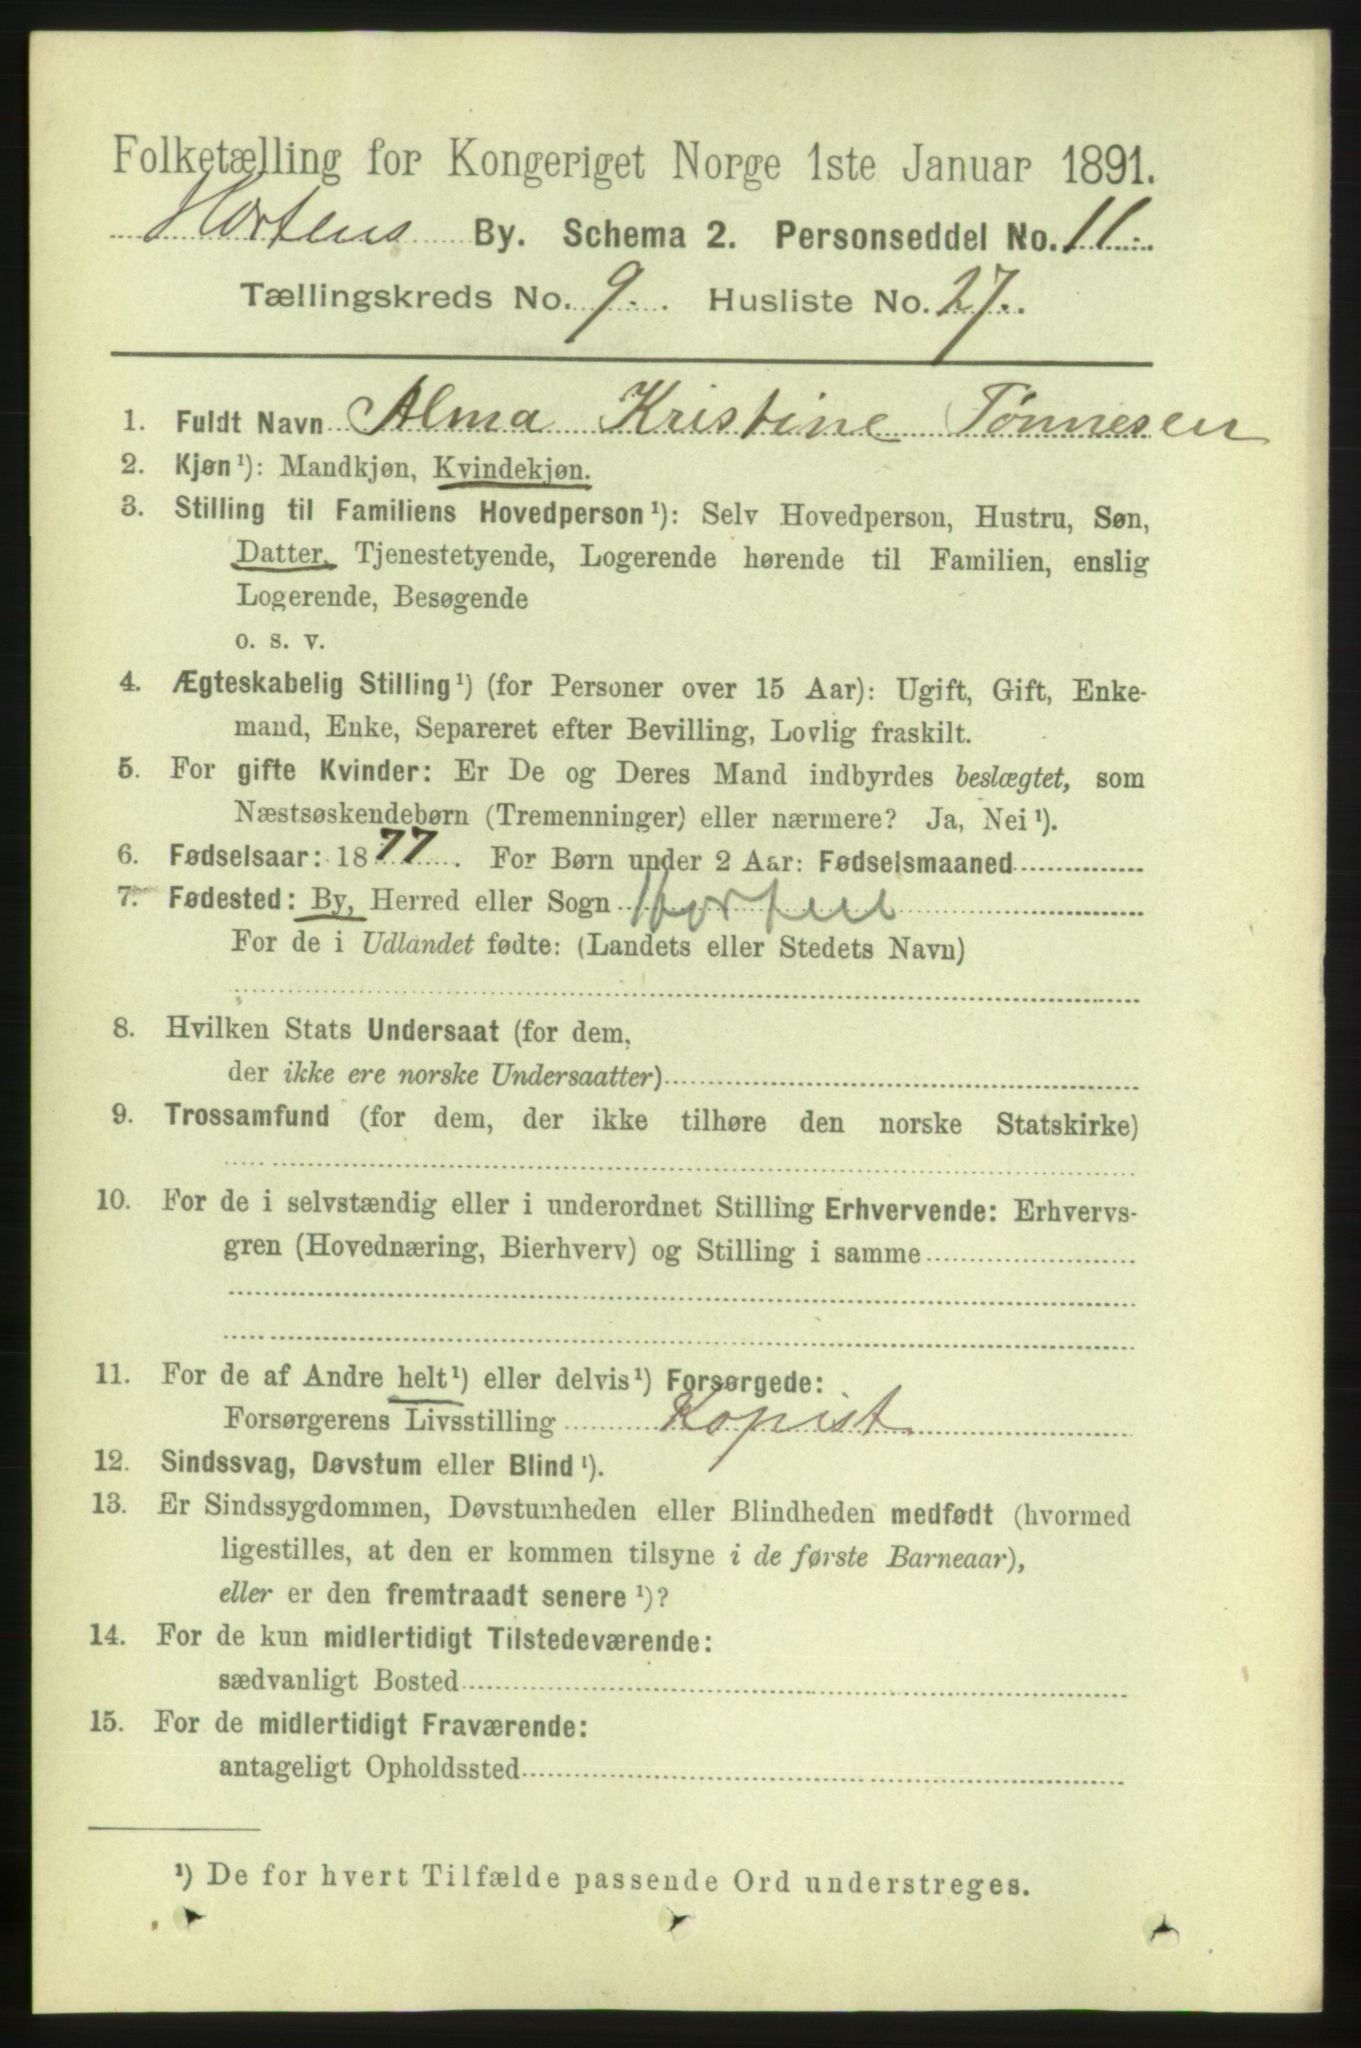 Folketælling for Kongeriget Norge 1ste Januar 1891.
Hortens By. Schema 2. Personseddel No. 11.
Tællingskreds No. 9. Husliste No. 27.
1. Fuldt Navn Alma Kristine Tønnesen
2. Kjøn¹): Mandkjøn, Kvindekjøn.
3. Stilling til Familiens Hovedperson¹): Selv Hovedperson, Hustru, Søn,
Datter, Tjenestetyende, Logerende hørende til Familien, enslig
Logerende, Besøgende
o. s. v.
4. Ægteskabelig Stilling¹) (for Personer over 15 Aar): Ugift, Gift, Enke-
mand, Enke, Separeret efter Bevilling, Lovlig fraskilt.
5. For gifte Kvinder: Er De og Deres Mand indbyrdes beslægtet, som
Næstsøskendebørn (Tremenninger) eller nærmere? Ja, Nei¹).
6. Fødselsaar: 1877. For Børn under 2 Aar: Fødselsmaaned
7. Fødested: By, Herred eller Sogn Horten
For de i Udlandet fødte: (Landets eller Stedets Navn)
8. Hvilken Stats Undersaat (for dem,
der ikke ere norske Undersaatter)
9. Trossamfund (for dem, der ikke tilhøre den norske Statskirke)
10. For de i selvstændig eller i underordnet Stilling Erhvervende: Erhvervs-
gren (Hovednæring, Bierhverv) og Stilling i samme
11. For de af Andre helt¹) eller delvis¹) Forsørgede:
Forsørgerens Livsstilling Kopist
12. Sindssvag, Døvstum eller Blind¹).
13. Er Sindssygdommen, Døvstumheden eller Blindheden medfødt (hvormed
ligestilles, at den er kommen tilsyne i de første Barneaar),
eller er den fremtraadt senere¹)?
14. For de kun midlertidigt Tilstedeværende:
sædvanligt Bosted
15. For de midlertidigt Fraværende:
antageligt Opholdssted
¹) De for hvert Tilfælde passende Ord understreges.